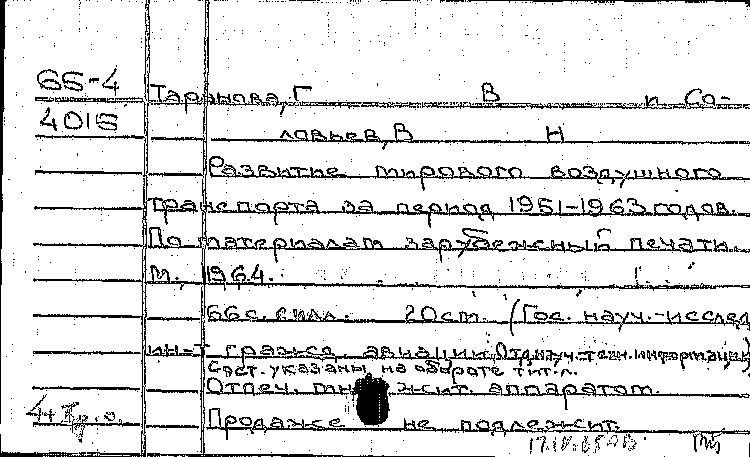 65-4
4015
Таранова, Г В и Со-
ловьев, В Н
Развитие мирового воздушного
транспорта за период 1951-1963 годов.
По материалам зарубежный печати.
М., 1964.
66 с. силл. 20 см. (Гос. науч.-исслед
ин-т гражд. авиации. Отд. науч.-техн. информации)
Сост. указаны на обороте тит. л.
Отпеч. множит. аппаратом.
Продаже не подлежит.